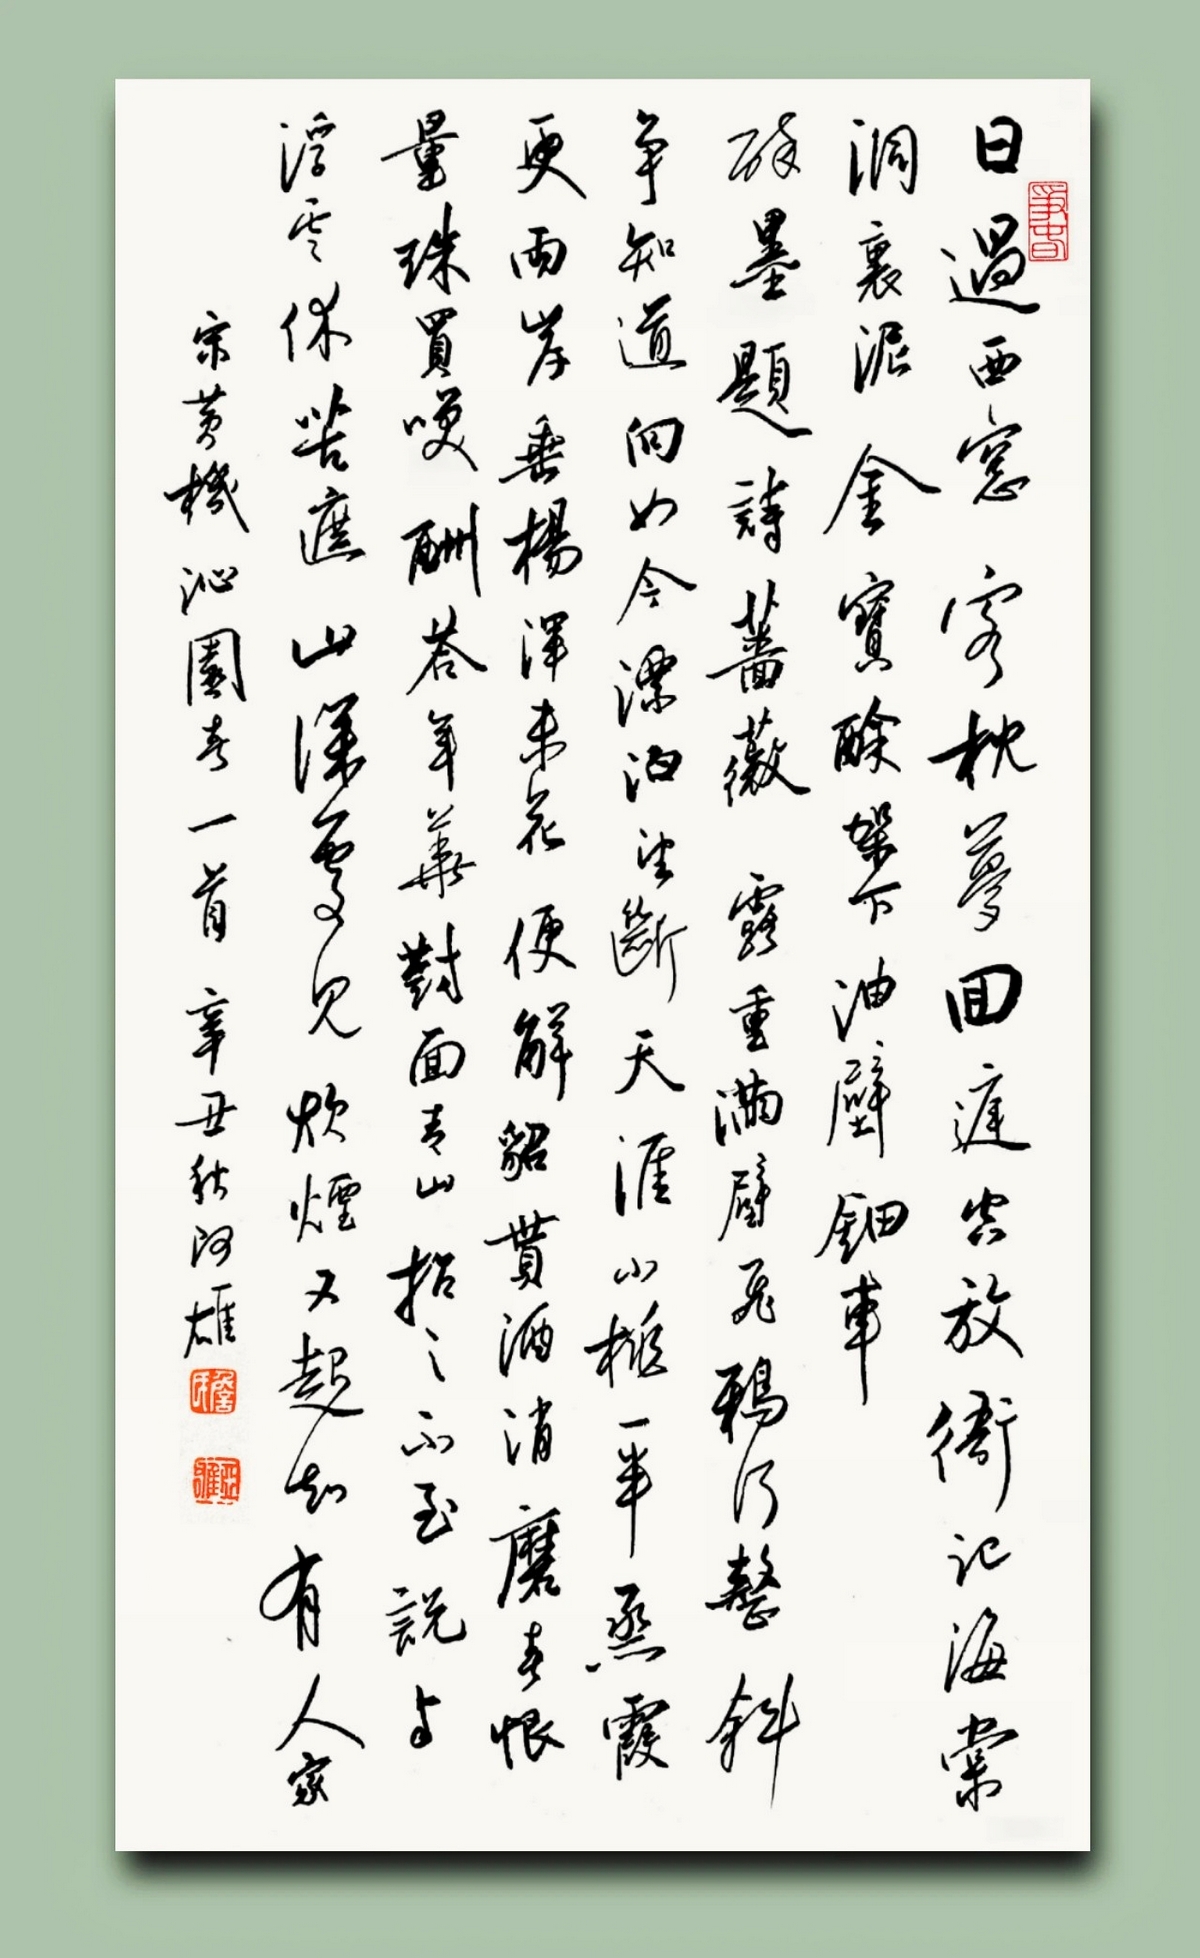 日過西窓客枕夢回庭空放衙記海棠
洞裏泥金寶酴架下油壁鈿車
醉墨題詩薔薇露重滿壁飛鴉行整斜
争知道向如今漂泊望斷天涯小桃一半蒸霞
更兩岸垂楊渾未花便解貂貰酒消磨春恨
量珠買咲酬答年華對面青山招之不至說与
浮雲休苦遮山深處見炊煙又起知有人家
宋黃機沁園春一首辛丑秋阿雄